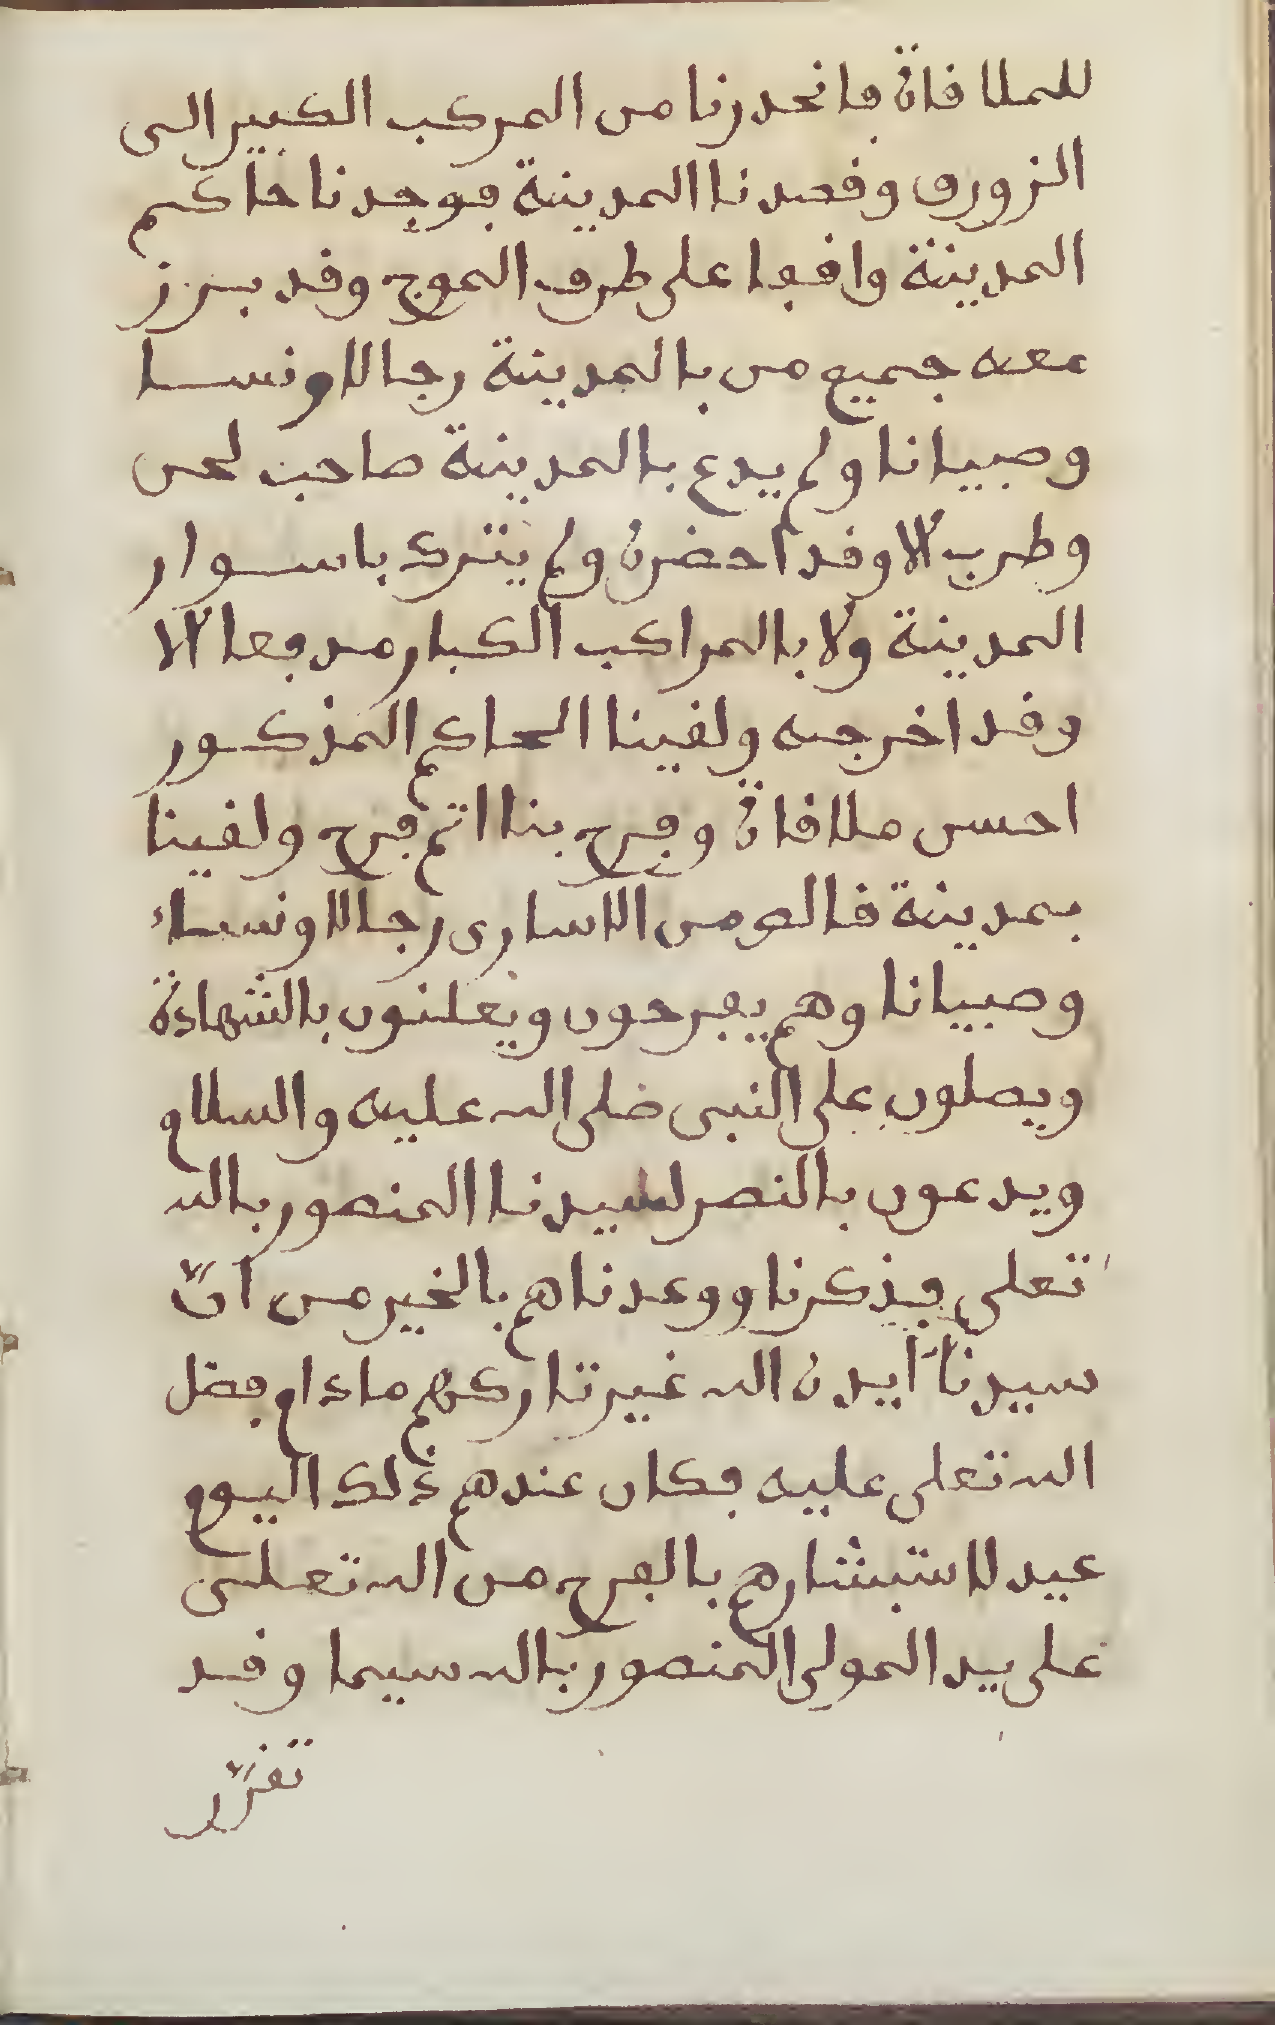 للملاقاة فانحدرنا من المركب الكبير الى
الزورق وقصدنا المدينة فوجدنا حاكم
المدينة واقفا على طرف الموج وقد برز
معه جميع من بالمدينة رجالا ونسا
وصبيانا ولم يدع بالمدينة صاحب لحن
وطرب الا وقد احضره ولم يترك باسوار
المدينة ولا بالمراكب الكبار مدفعا الا
وقد اخرجه ولقينا الحاكم المذكور
احسن ملاقاة وفرح بنا اتم فرح ولقينا
بمدينة قالص من الاسارى رجالا ونساء
وصبيانا وهم يفرحون ويعلنون بالشهادة
ويصلون على النبي صلى الله عليه والسلام
ويدعون بالنصر لسيدنا المنصور بالله
تعلى فذكرنا ووعدناهم بالخير من انّ
سيدنا ايده الله غير تاركهم مادام فضل
الله تعلى عليه فكان عندهم ذلك اليوم
عيد لاستبشارهم بالفرج من الله تعلى
على يد المولى المنصور بالله سيما وقد
تقرّر